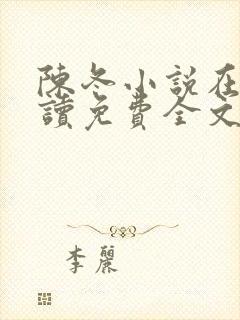 陳冬小說在
讀免費全文
李麗